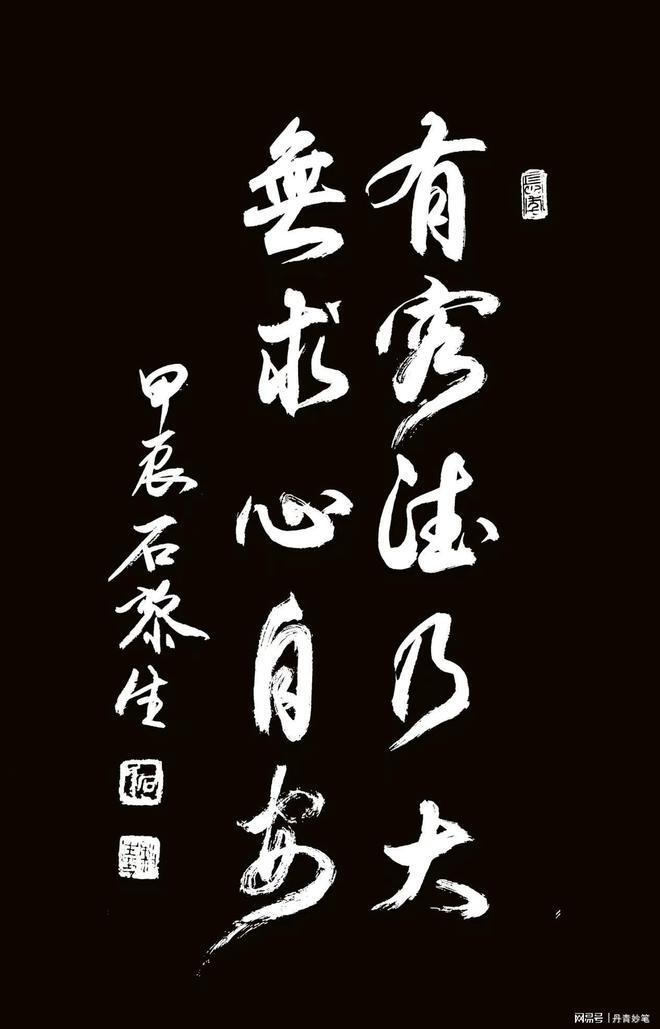 有容德乃大
無求心自安
甲辰石黎生
网易号 | 丹青妙笔